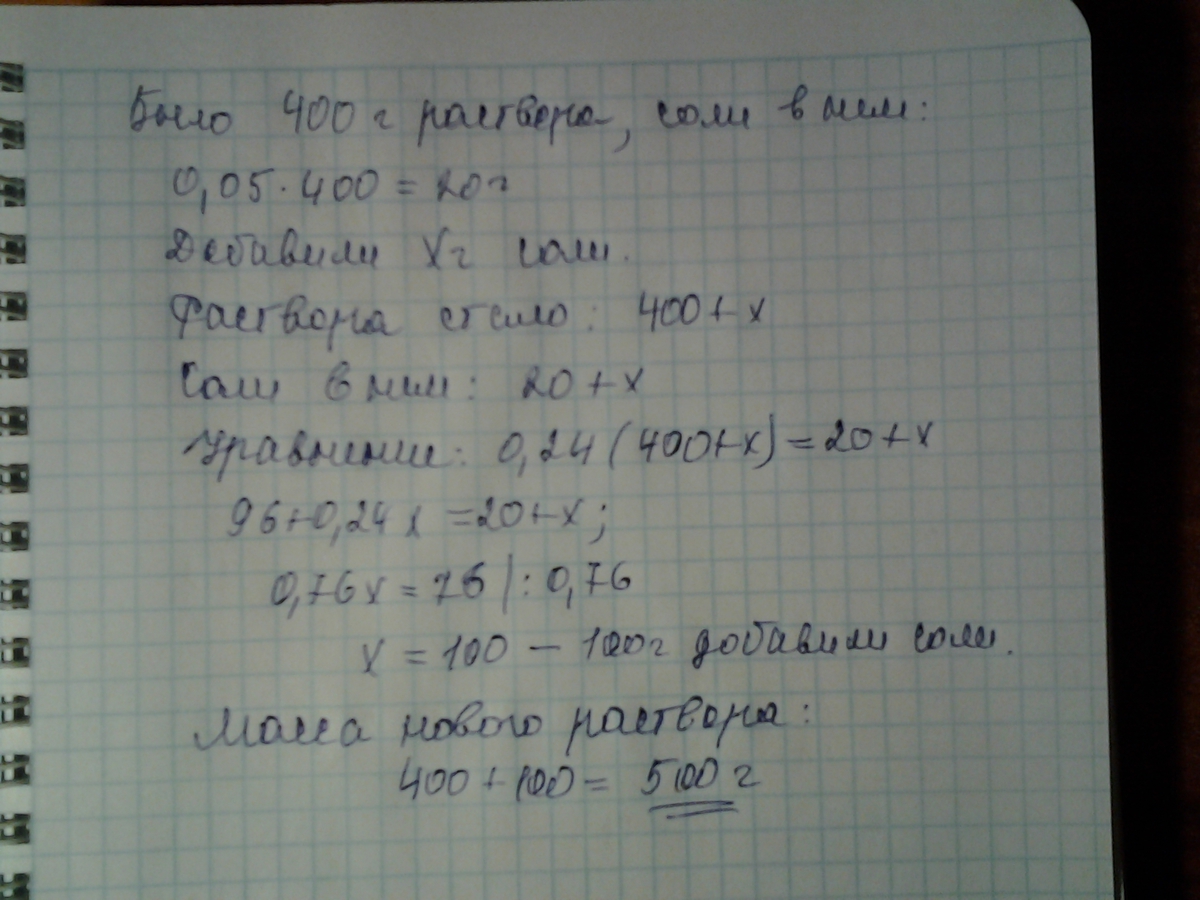 Было 400 г раствора, соли в нем:
0,05·400 = 20г
Добавили Xг соли.
Раствора стало: 400+x
Соли в нем: 20+x
Уравнение: 0,24(400+x)=20+x
96+0,24x=20+x;
0,76x=76|:0,76
x=100 – 100г добавили соли.
Масса нового раствора:
400+100= 500 г